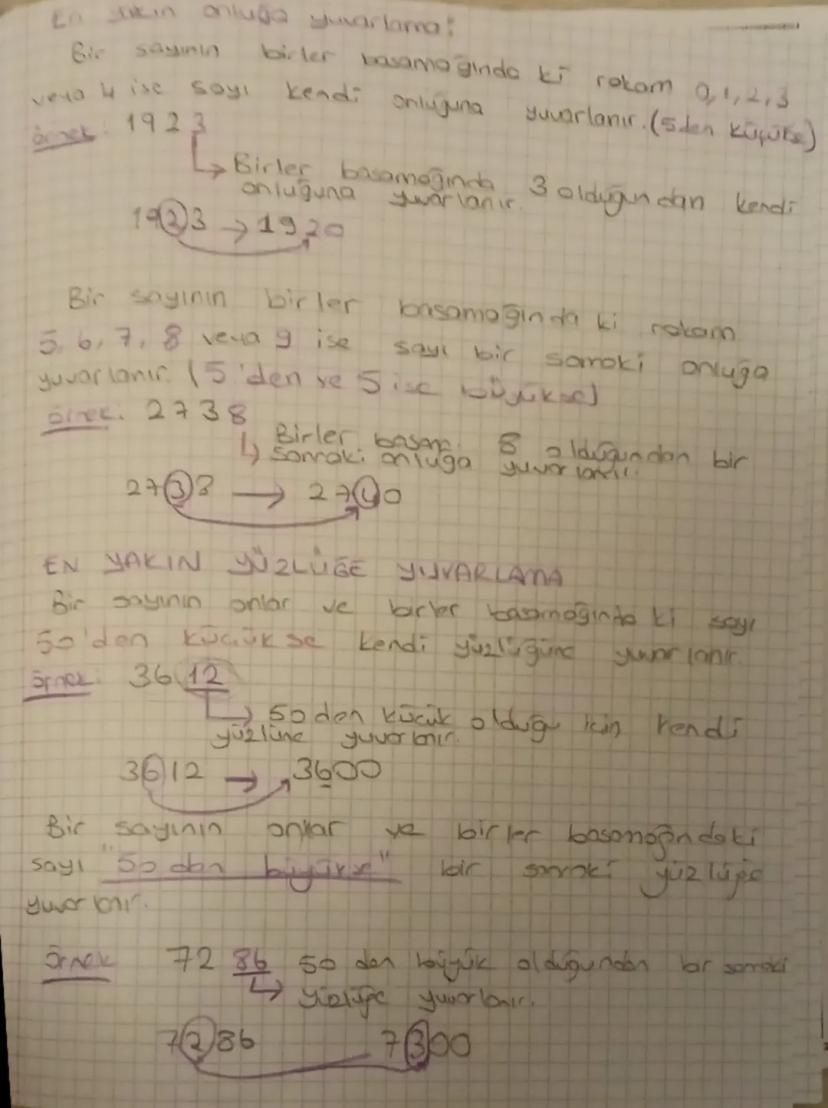 En yakın onluğa yuvarlama:
Bir sayının birler basamağında ki rakam 0,1,2,3
veya 4 ise sayı kendi onluğuna yuvarlanır. (5den küçükse)
örnek: 1923
↳ Birler basamağında 3 olduğundan kendi
onluğuna yuvarlanır.
1923 → 1920
Bir sayının birler basamağında ki rakam
5, 6, 7, 8 veya 9 ise sayı bir sonraki onluğa
yuvarlanır. (5'den ve 5 ise büyükse)
örnek: 2738
↳ Birler basam. 8 olduğundan bir
sonraki onluğa yuvarlanır.
2738 → 2740
EN YAKIN YÜZLÜĞE YUVARLAMA
Bir sayının onlar ve birler basamağında ki sayı
50'den küçükse kendi yüzlüğüne yuvarlanır.
örnek: 3612
↳ 50 den küçük olduğu için kendi
yüzlüne yuvarlanır.
3612 → 3600
Bir sayının onlar ve birler basamağındaki
sayı "50 den büyükse" bir sonraki yüzlüğe
yuvarlanır.
Örnek 7286 50 den büyük olduğundan bir sonraki
↳ yüzlüğe yuvarlanır.
7286 7300